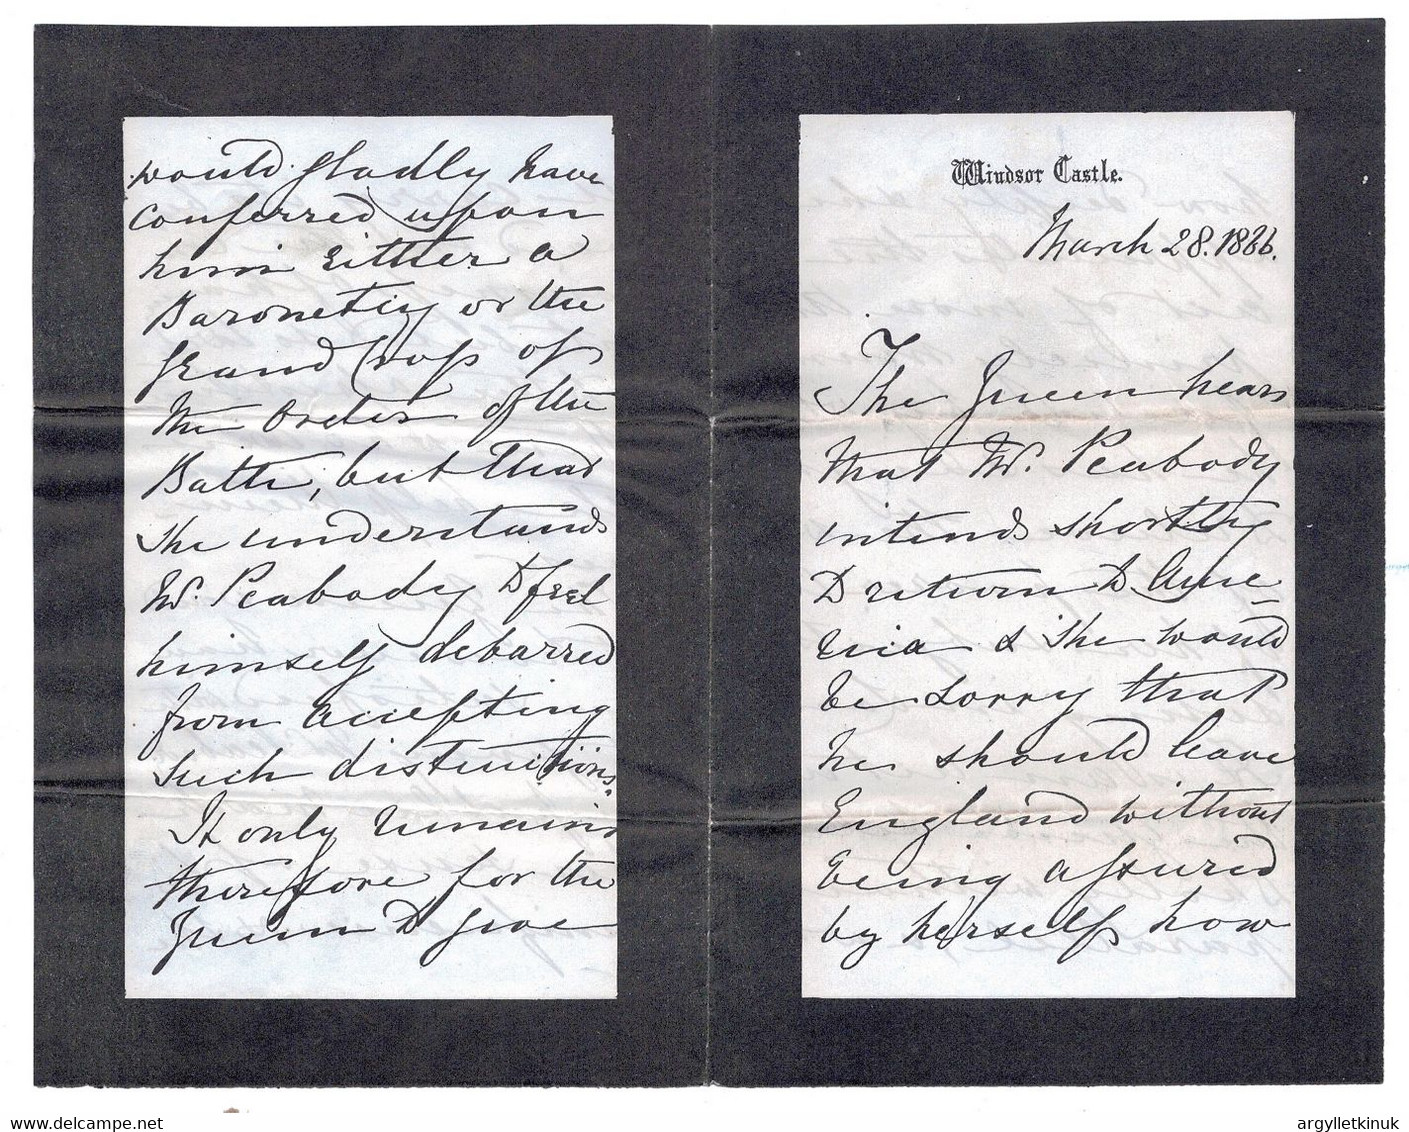 Windsor Castle.
March 28. 1866.
The Queen hears
that Mr. Peabody
intends shortly
to return to Ame=
rica & she would
be sorry that
he should leave
England without
being assured
by herself how
would gladly have
conferred upon
him either a
Baronetcy or the
Grand Cross of
the Order of the
Bath, but that
she understands
Mr. Peabody to feel
himself debarred
from accepting
such distinctions.
It only remains
therefore for the
Queen to give
www.delcampe.net
argylletkinuk